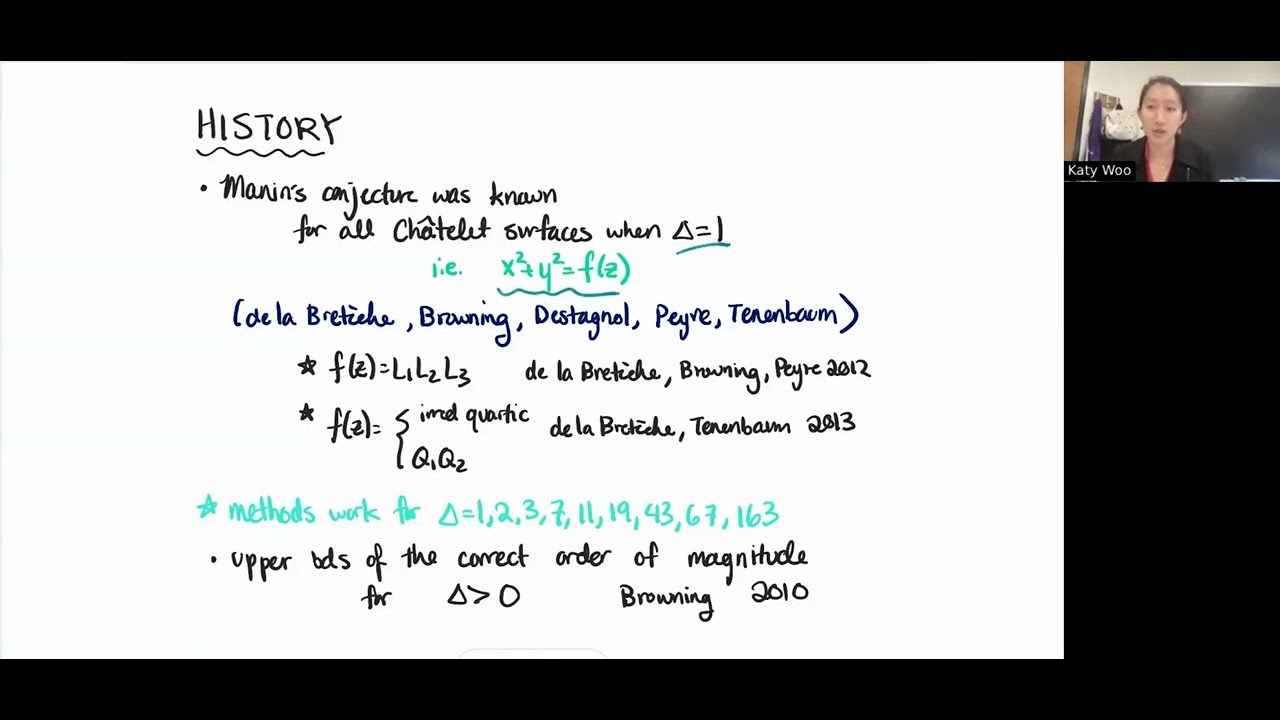 HISTORY
• Manin's conjecture was known
for all Châtelet surfaces when Δ=1
i.e. x²+y²=f(z)
(de la Bretèche, Browning, Destagnol, Peyre, Tenenbaum)
☆ f(z)=L₁L₂L₃ de la Bretèche, Browning, Peyre 2012
☆ f(z)= { irred quartic de la Bretèche, Tenenbaum 2013
Q₁Q₂
☆ methods work for Δ=1,2,3,7,11,19,43,67,163
• upper bds of the correct order of magnitude
for Δ>0 Browning 2010
Katy Woo